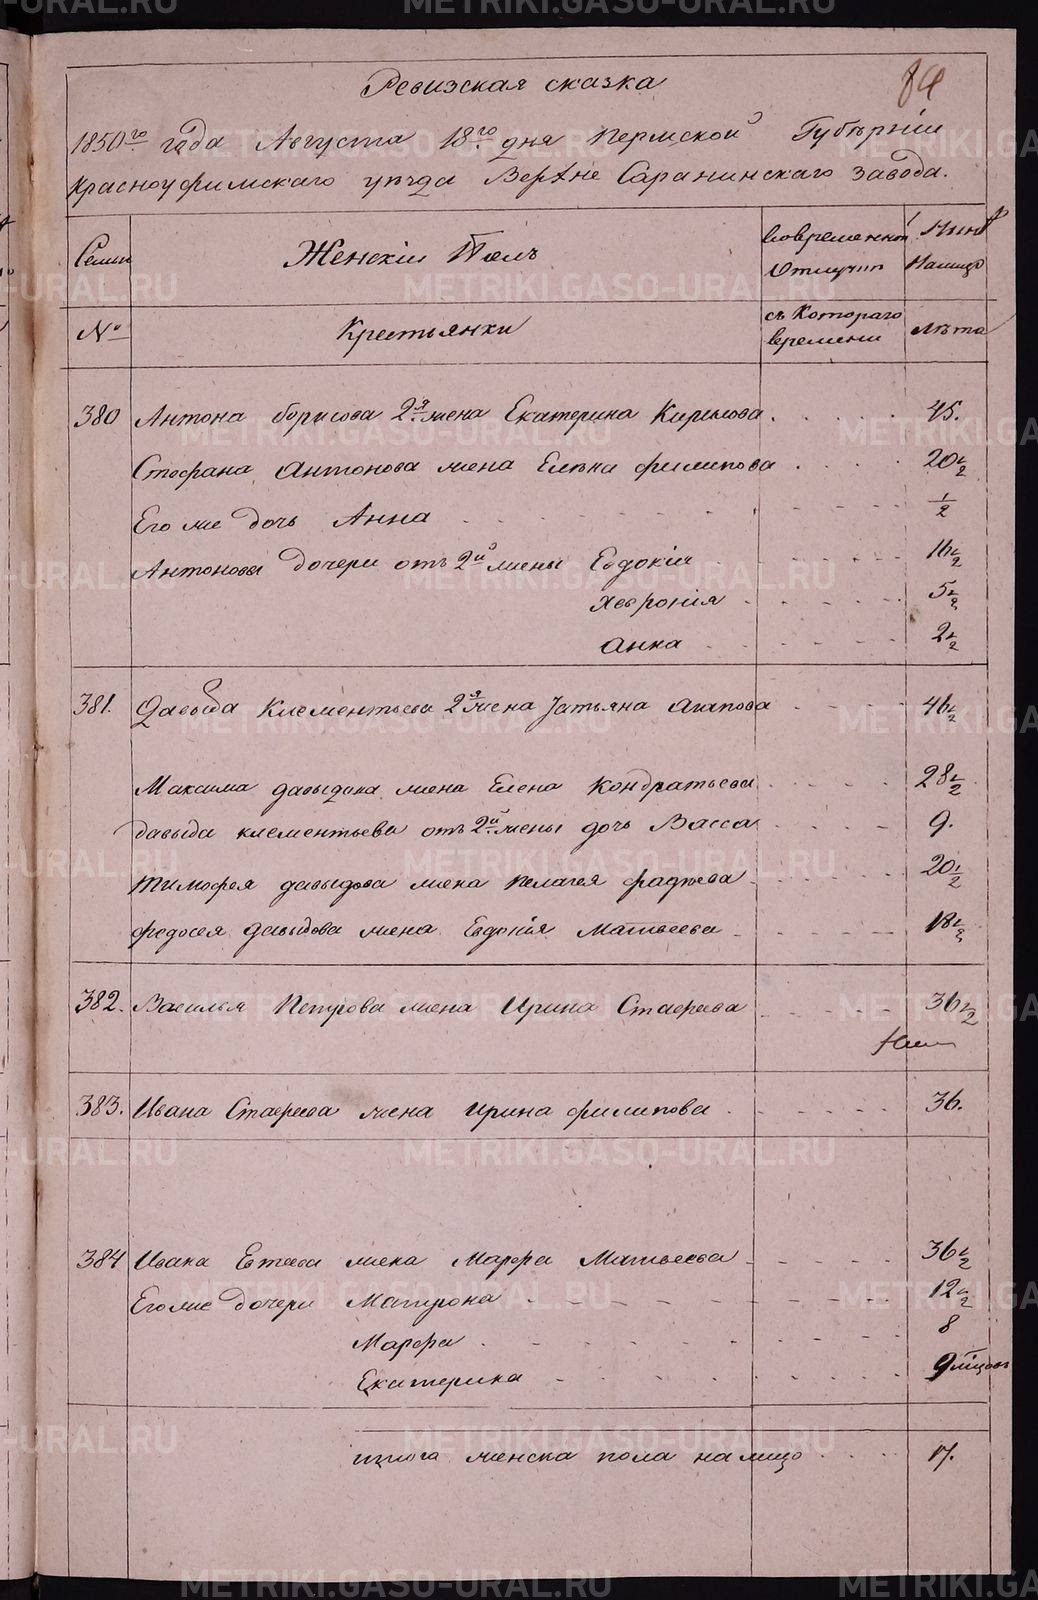 84
Ревизская сказка
1850го года Августа 18го дня Пермской Губѣрнiи
Красноуфимскаго уѣзда Верхне Саранинскаго завода.
Семьи Женскiй Полъ Вовременной отлучки Нынѣ Налицо
№ Крестьянки съ Котораго времени Лѣта
380 Антона Борисова 2я жена Екатерина Кирилова 45.
Стефана Антонова жена Елѣна филипова 20 1/2
Его же дочь Анна 1/2
Антоновы дочери отъ 2й жены Евдокiя 16 1/2
Хеврония 5 1/2
Анна 2 1/2
381. Давыда Клементьева 2я жена Татьяна Агапова 46 1/2
Максима давыдова жена Елена Кондратьева 28 1/2
давыда клементьева отъ 2й жены дочь Васса 9.
Тимофея давыдова жена Пелагея фадѣева 20 1/2
федосея давыдова жена Евдокiя Матвеева 18 1/2
382. Василья Петрова жена Ирина Стафеева 36 1/2
383. Ивана Стафеева жена Ирина филипова 36.
384 Ивана Евтеева жена Марфа Матвеева 36 1/2
Его же дочери Матрона 12 1/2
Марфа 8
Екатерина 9 мѣцовъ
итого женска пола налицо 17.
METRIKI.GASO-URAL.RU